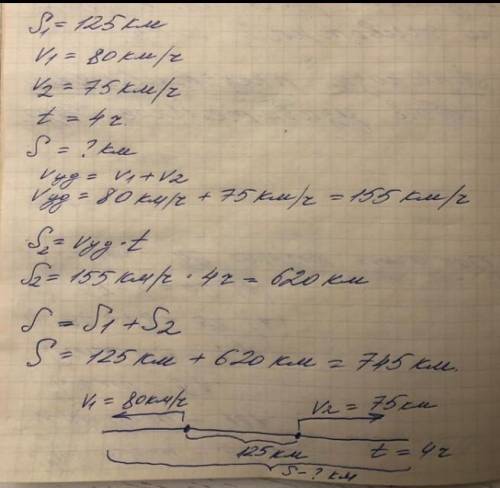 S₁ = 125 км
v₁ = 80 км/ч
v₂ = 75 км/ч
t = 4 ч.
S = ? км
vуд = v₁ + v₂
vуд = 80 км/ч + 75 км/ч = 155 км/ч
S₂ = vуд · t
S₂ = 155 км/ч · 4 ч = 620 км
S = S₁ + S₂
S = 125 км + 620 км = 745 км.
v₁ = 80 км/ч v₂ = 75 км
125 км t = 4 ч
S - ? км